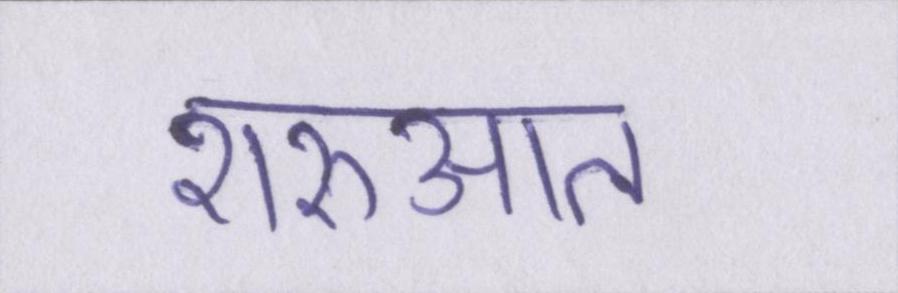 शरुआत